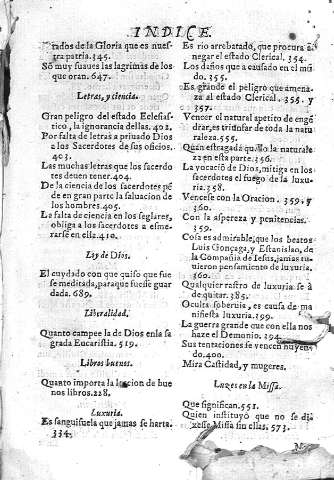 INDICE.
trados de la Gloria que es nuestra patria. 345.
Sō muy suaues las lagrimas de los
que oran. 647.
Letras, y ciencia.
Gran peligro del estado Eclesias-
tico, la ignorancia dellas. 402.
Por falta de letras a priuado Dios
a los Sacerdotes de sus oficios.
403.
Las muchas letras que los sacerdo
tes deuen tener. 404.
De la ciencia de los sacerdotes pē
de en gran parte la saluacion de
los hombres. 405.
La falta de ciencia en los seglares,
obliga a los sacerdotes a esme-
rarse en ella. 410.
Ley de Dios.
El cuydado con que quiso que fue
se meditada, para que fuesse guar
dada. 689.
Liberalidad.
Quanto campee la de Dios en la sa
grada Eucaristia. 519.
Libros buenos.
Quanto importa la lecion de bue
nos libros. 228.
Luxuria.
Es sanguisuela que jamas se harta.
334.
Es rio arrebatado, que procura a
negar el estado Clerical. 354.
Los daños que a causado en el mū
do. 355.
Es grande el peligro que amena-
za al estado Clerical. 355. y
357.
Vencer el natural apetito de engē
drar, es triunfar de toda la natu
raleza. 355.
Quan estragada quedo la naturale
za en esta parte. 356.
La vocació de Dios, mitiga en los
sacerdotes el fuego de la luxu-
ria. 358.
Vencese con la Oracion. 359. y
360.
Con la aspereza y penitencias.
359.
Cosa es admirable, que los beatos
Luis Gonçaga, y Estanislao, de
la Compañia de Iesus, jamas tu-
uieron pensamiento de luxuria.
360.
Qualquier rastro de luxuria se à
de quitar. 385.
Oculta soberuia, es causa de ma
nifiesta luxuria. 399.
La guerra grande que con ella nos
haze el Demonio. 394.
Sus tentaciones se vencen huyen
do. 400.
Mira Castidad, y mugeres.
Luzes en la Missa.
Que significan. 551.
Quien instituyò que no se di
xesse Missa sin ellas. 573.